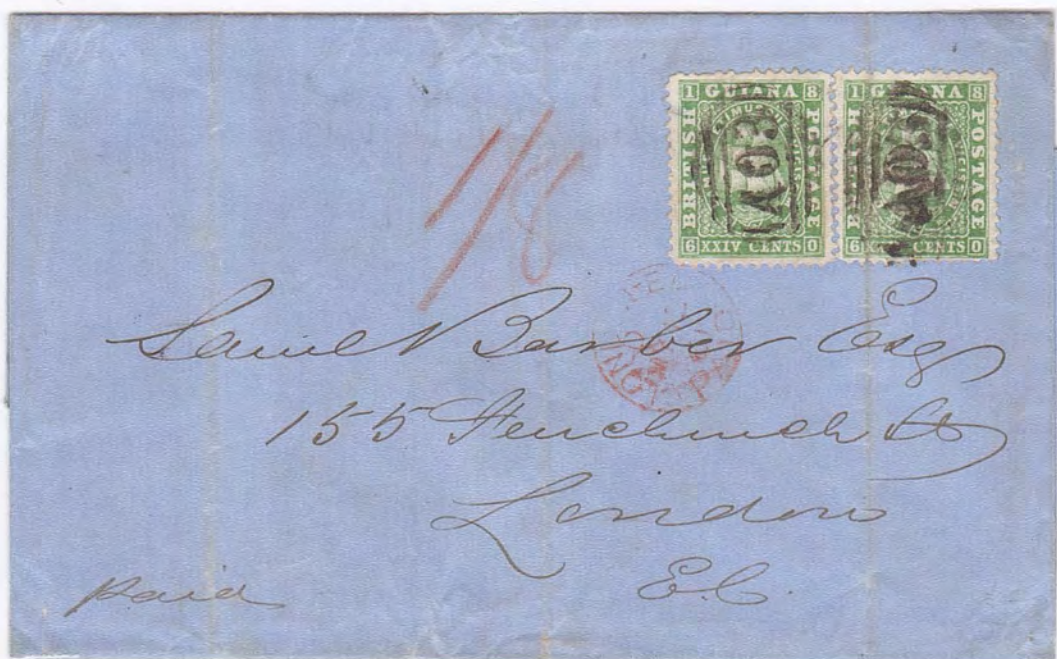 1 GUIANA 8
BRITISH
POSTAGE
6 XXIV CENTS 0
A03
1 GUIANA 8
BRITISH
POSTAGE
6 XXIV CENTS 0
A03
1/8
LONDON
PAID
Saml Barber Esq
155 Fenchurch St
London
E.C.
paid